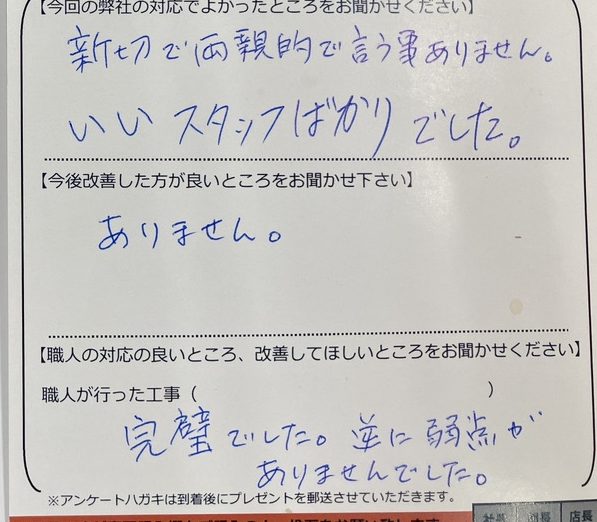 【今回の弊社の対応でよかったところをお聞かせください】
新切で両親的で言う事ありません。
いいスタッフばかりでした。
【今後改善した方が良いところをお聞かせ下さい】
ありません。
【職人の対応の良いところ、改善してほしいところをお聞かせください】
職人が行った工事（　　　）
完璧でした。逆に弱点が
ありませんでした。
※アンケートハガキは到着後にプレゼントを郵送させていただきます。
店長